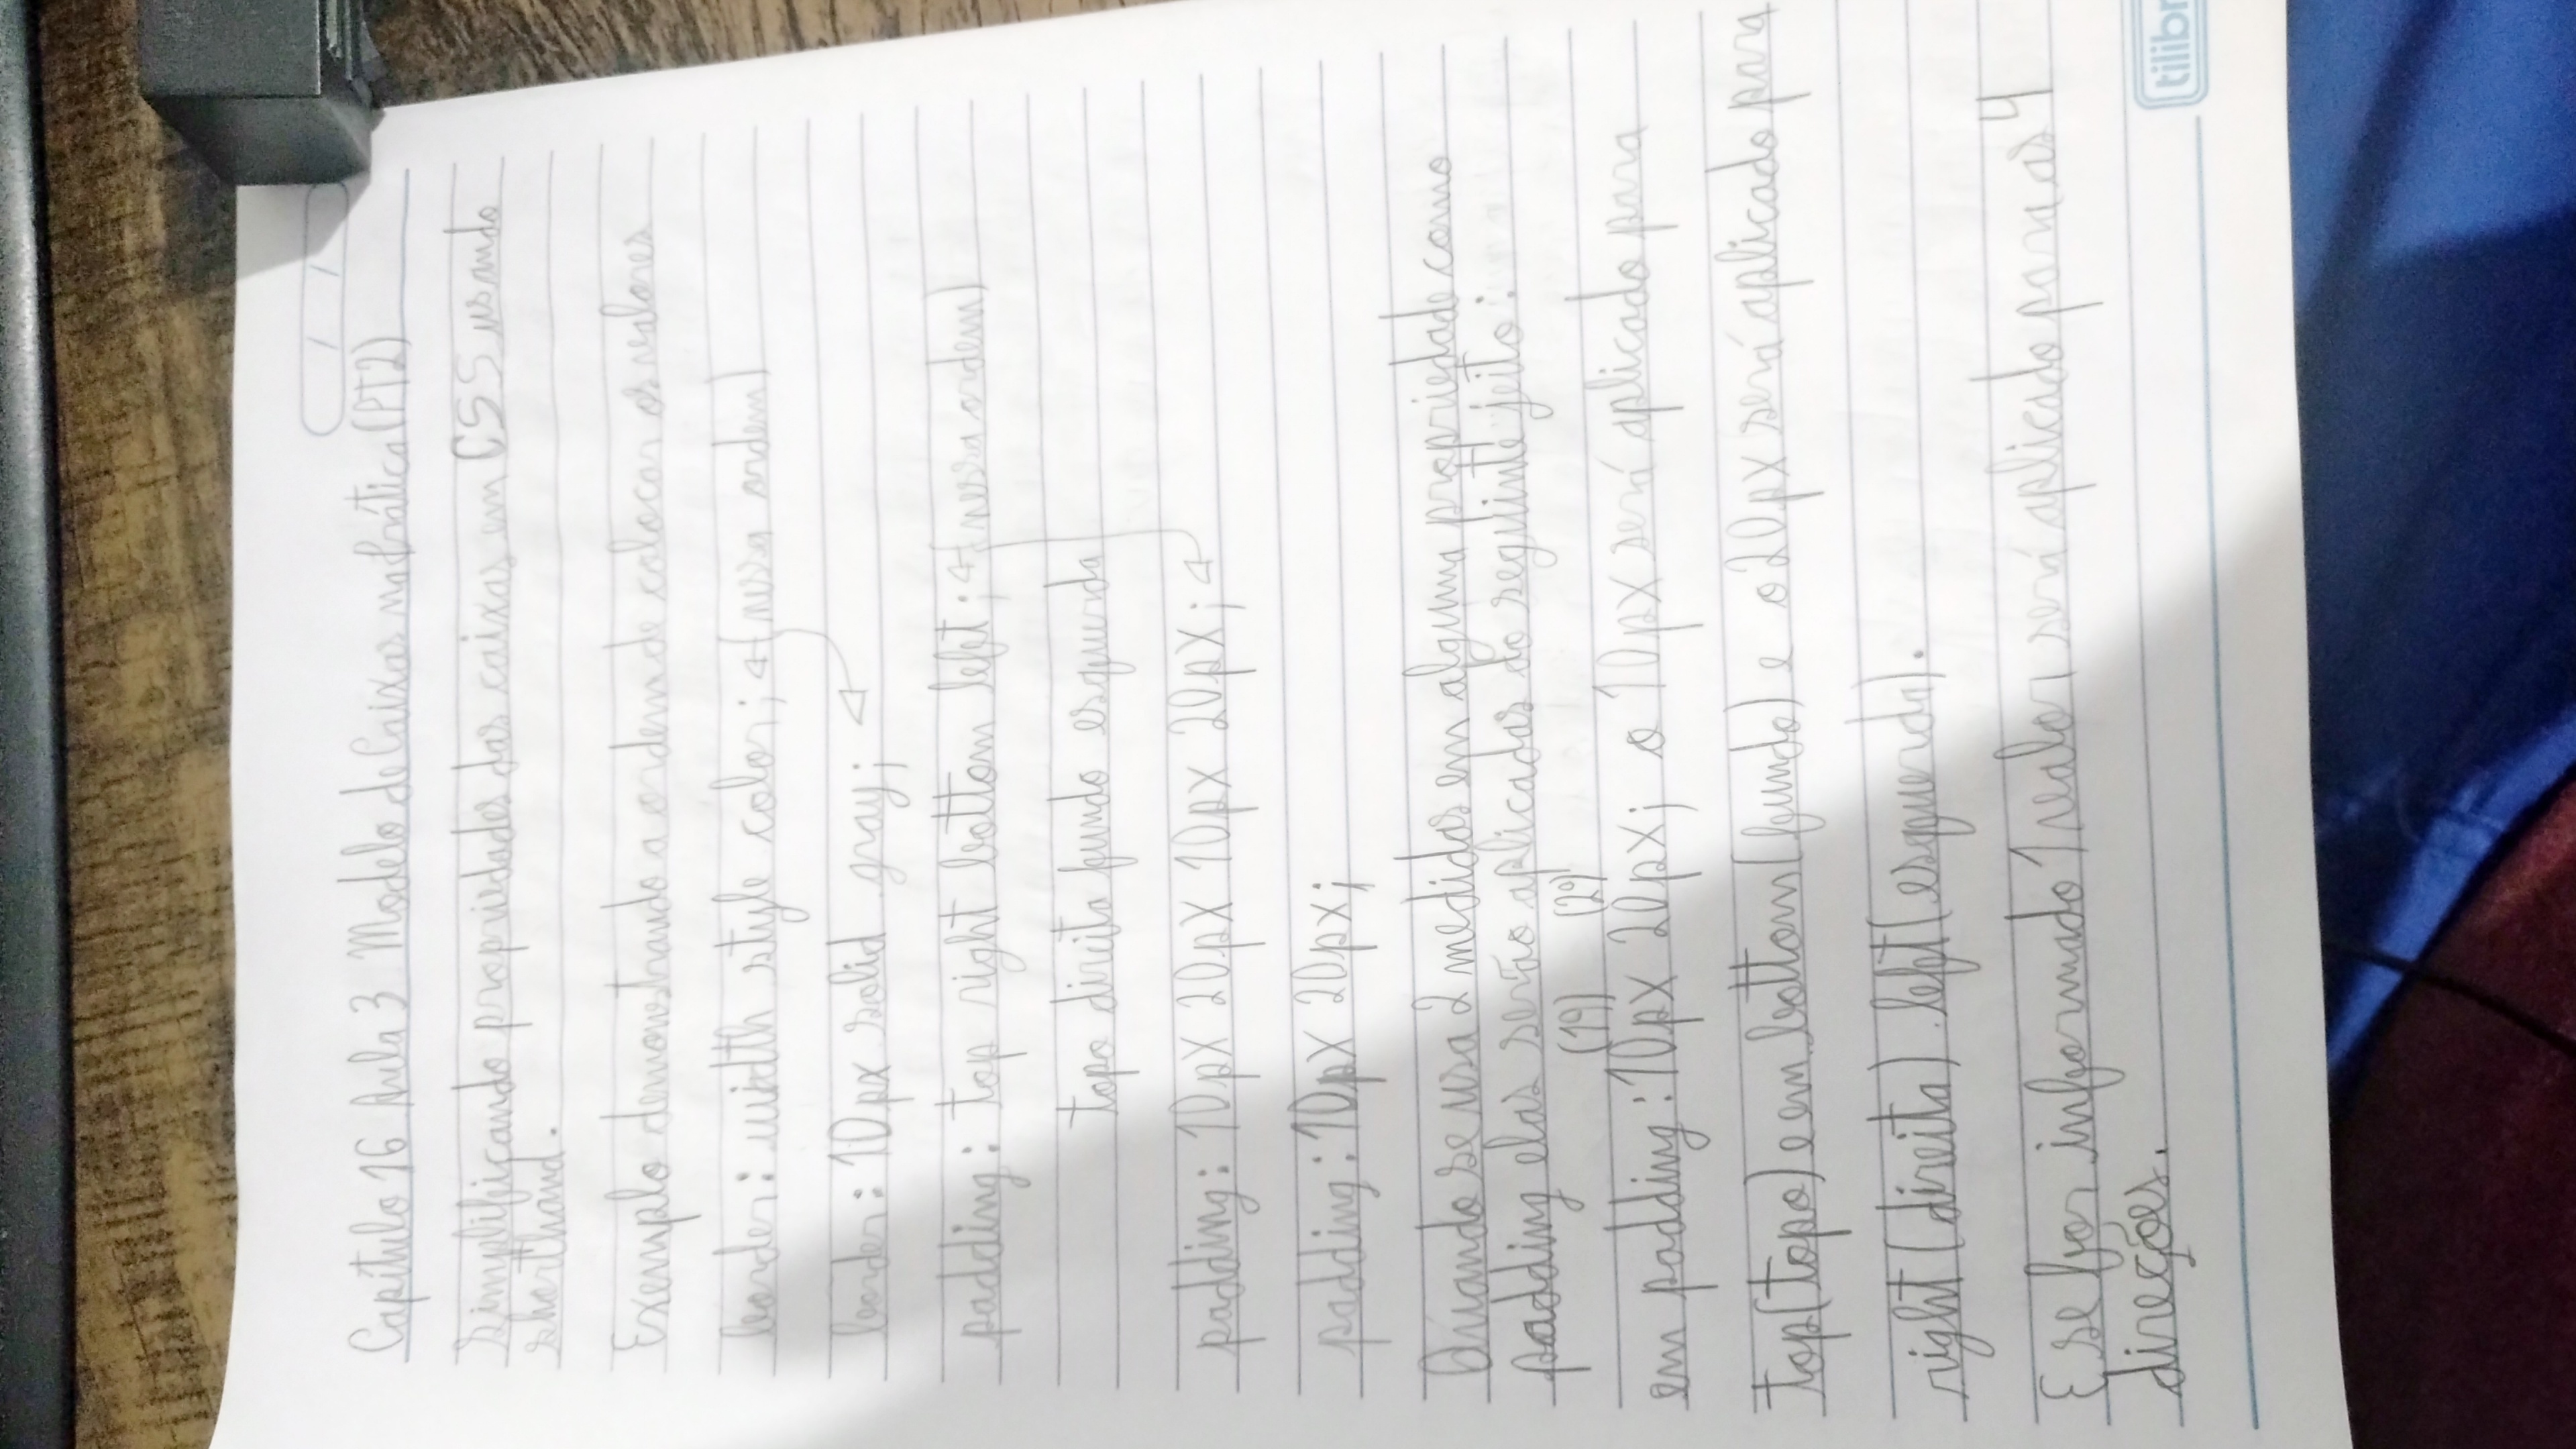 Capítulo 16 Aula 3 Modelo de Caixas na Prática (PT2)
Simplificando propriedades das caixas em CSS usando
shorthand.
Exemplo demonstrando a ordem de colocar os valores
border: width style color; (nessa ordem)
border: 10px solid gray;
padding: top right bottom left; (nessa ordem)
topo direita fundo esquerda
padding: 10px 20px 10px 20px;
padding: 10px 20px;
Quando se usa 2 medidas em alguma propriedade como
padding elas serão aplicadas do seguinte jeito:
(1º) (2º)
em padding: 10px 20px; o 10px será aplicado para
top(topo) e em bottom(fundo) e o 20px será aplicado para
right(direita) left(esquerda).
E se for informado 1 valor será aplicado para as 4
direções.
tilibr